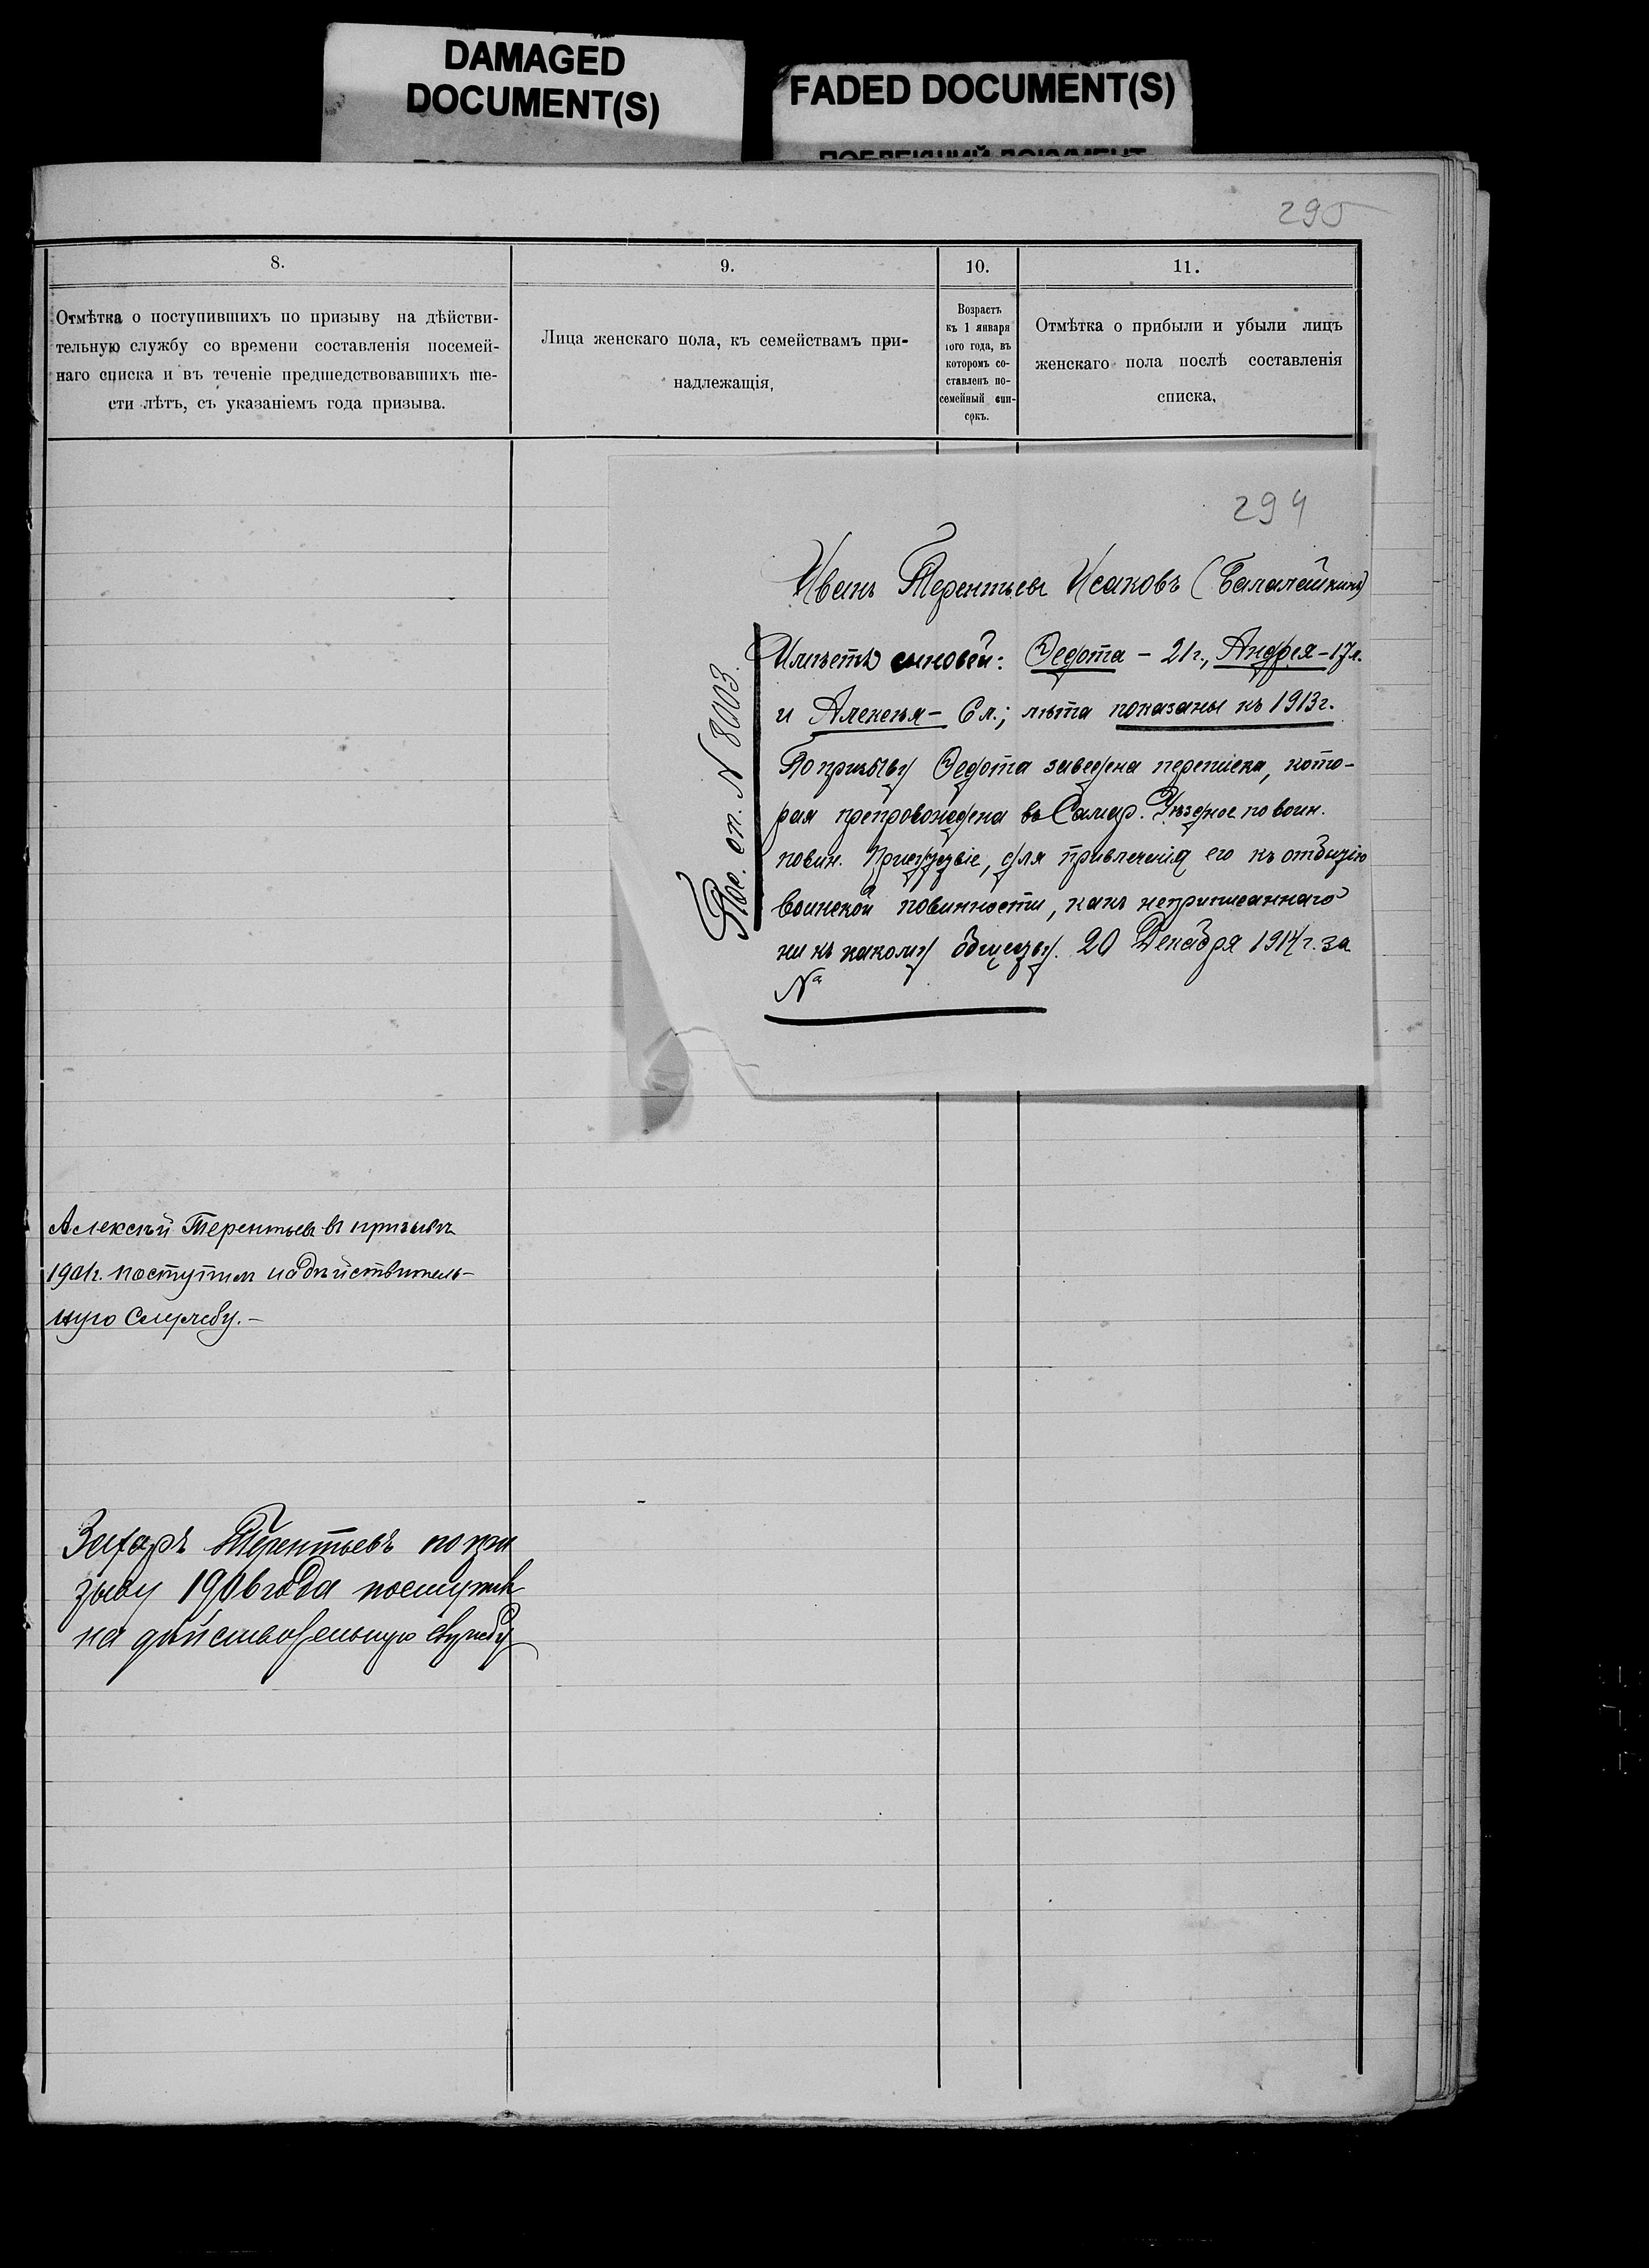 DAMAGED
DOCUMENT(S)
FADED DOCUMENT(S)
ПОБЛЕКШИЙ ДОКУМЕНТ
295
8.
9.
10.
11.
Отмѣтка о поступившихъ по призыву на дѣйстви-
тельную службу со времени составленія посемей-
наго списка и въ теченіе предшедствовавшихъ ше-
сти лѣтъ, съ указаніемъ года призыва.
Лица женскаго пола, къ семействамъ при-
надлежащія,
Возрастъ
къ 1 января
того года, въ
которомъ со-
ставленъ по-
семейный спи-
сокъ.
Отмѣтка о прибыли и убыли лицъ
женскаго пола послѣ составленія
списка,
294
Иванъ Терентьевъ Исаковъ (Балалейкинъ)
Имѣетъ сыновей: Ѳедота - 21 г., Андрея - 17 л.
и Алексѣя - 6 л.; лѣта показаны къ 1913 г.
По призыву Ѳедота заведена переписка, кото-
рая препровождена въ Самар. Уѣздное по воин.
повин. Присутствіе, для привлеченія его къ отбытію
воинской повинности, какъ неприписаннаго
ни къ какому обществу. 20 Декабря 1914 г. за
№
Пос. сп. № 8003.
Алексѣй Терентьевъ въ призывъ
1901 г. поступилъ на дѣйствитель-
ную службу. -
Захаръ Терентьевъ по при
зыву 1906 года поступилъ
на дѣйствительную службу